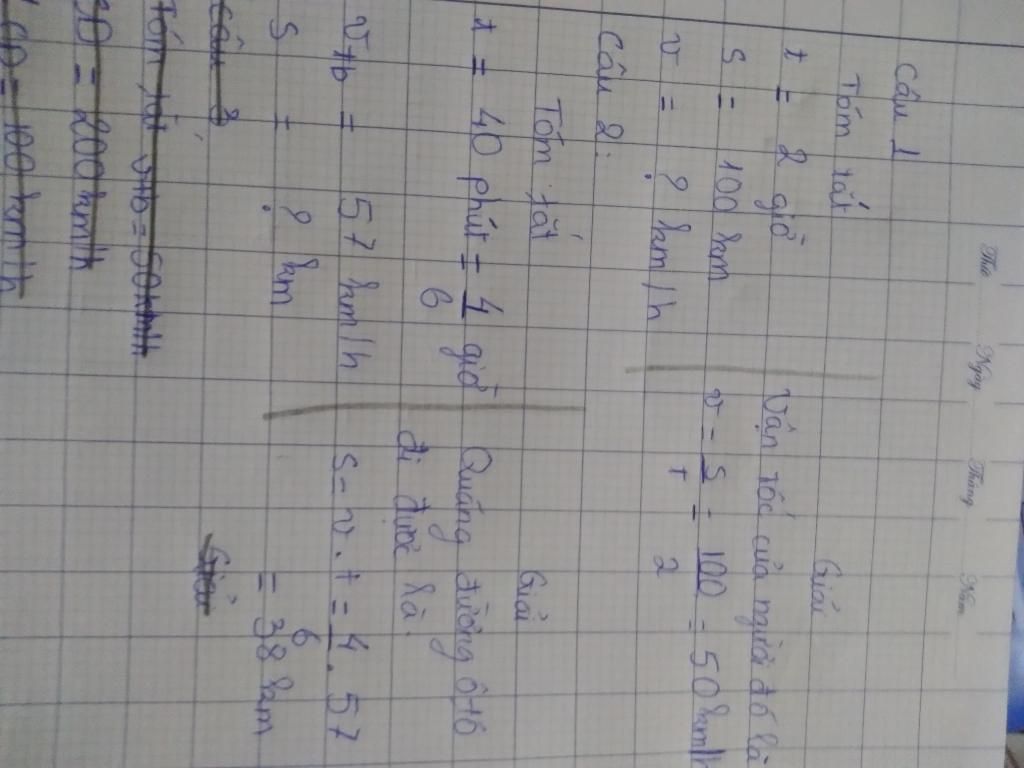 Thứ Ngày Tháng Năm
Câu 1
Tóm tắt
t = 2 giờ
S = 100 km
v = ? km/h
Giải
Vận tốc của người đó là
v = S/t = 100/2 = 50 km/h
Câu 2:
Tóm tắt
t = 40 phút = 4/6 giờ
vtb = 57 km/h
S = ? km
Giải
Quãng đường ô tô
đi được là.
S = v.t = 4/6 . 57
= 38 km
Câu 3
Giải
Tóm tắt vtb = 50km/h
= 200km/h
CD = 100km/h